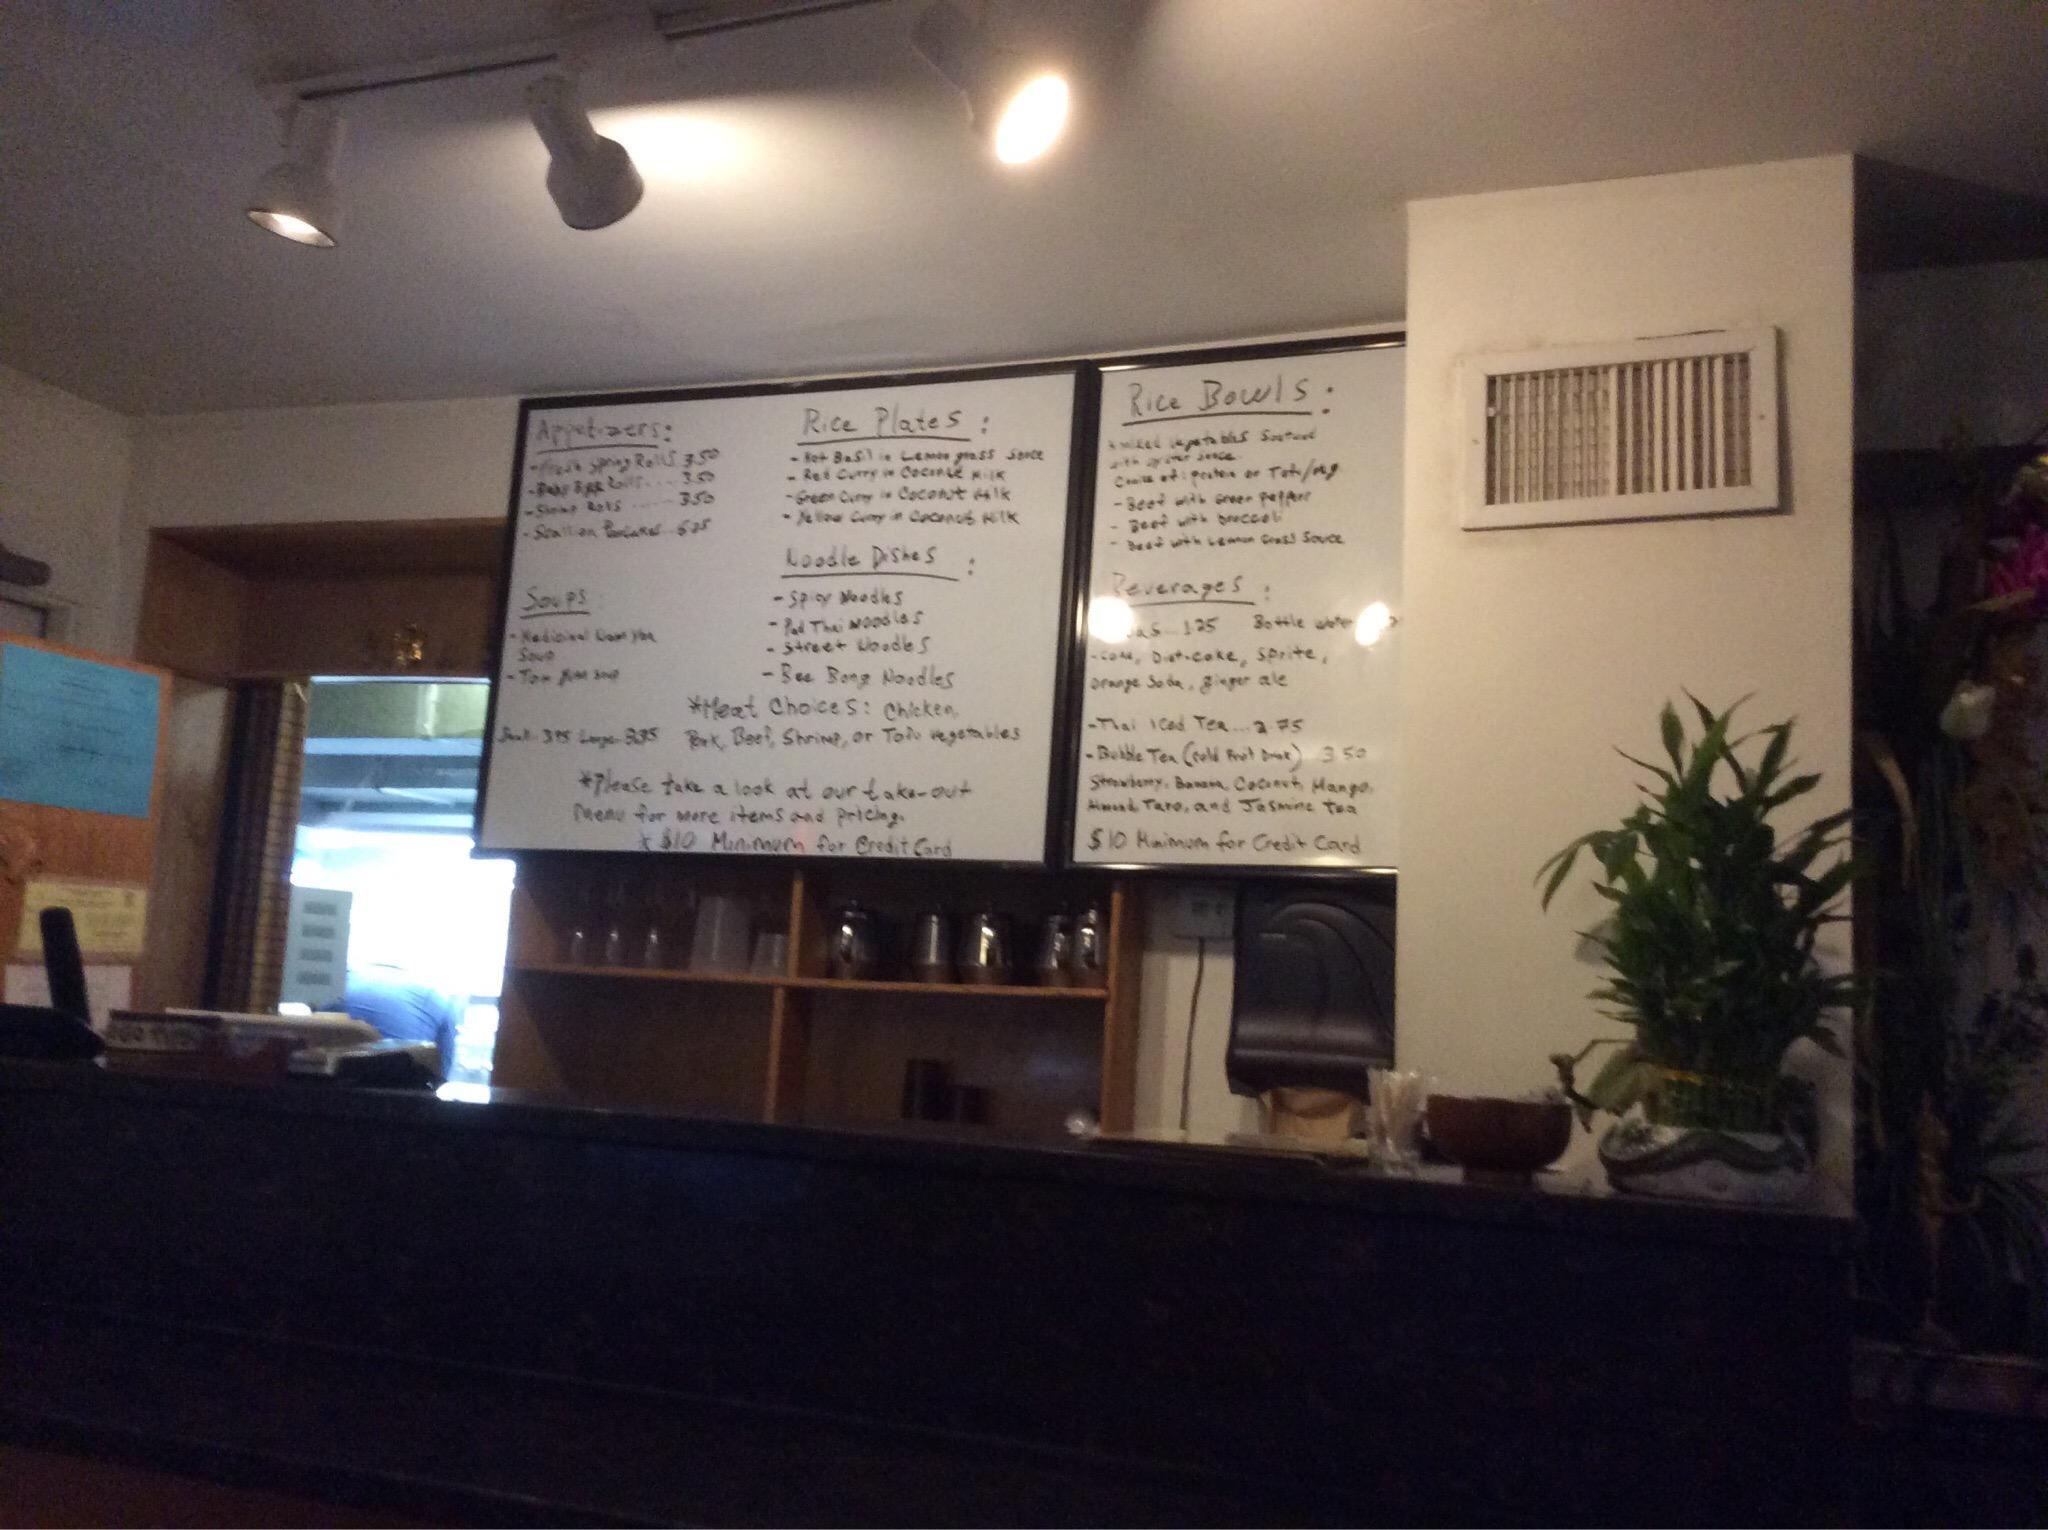 Appetizers:
-Fresh Spring Rolls 3.50
-Baby Egg Rolls..... 3.50
-Shrimp Rolls ...... 3.50
-Scallion Pancakes..
Soups
-Medicinal
Soup
-Tom Yum Soup
Large
Rice Plates:
-Hot Basil in Lemongrass Sauce
-Red Curry in Coconut Milk
-Green Curry in Coconut Milk
-Yellow Curry in Coconut Milk
Noodle Dishes:
-Spicy Noodles
-Pad Thai Noodles
-Street Noodles
-Bee Bong Noodles
*Meat Choices: Chicken,
Pork, Beef, Shrimp, or Tofu vegetables
*Please take a look at our take-out
menu for more items and pricing.
* $10 Minimum for Credit Card
Rice Bowls:
mixed vegetables Sauteed
with oyster sauce.
Choice of: protein or Tofu/veg
-Beef with Green Peppers
-Beef with Broccoli
-Beef with Lemon Grass Sauce
Beverages:
...1.25 Bottle water
-Coke, Diet-coke, Sprite,
Orange Soda, ginger ale
-Thai Iced Tea...2.75
-Bubble Tea (Cold Fruit Drink) 3.50
Strawberry, Banana, Coconut, Mango,
Almond, Taro, and Jasmine tea
$10 Minimum for Credit Card